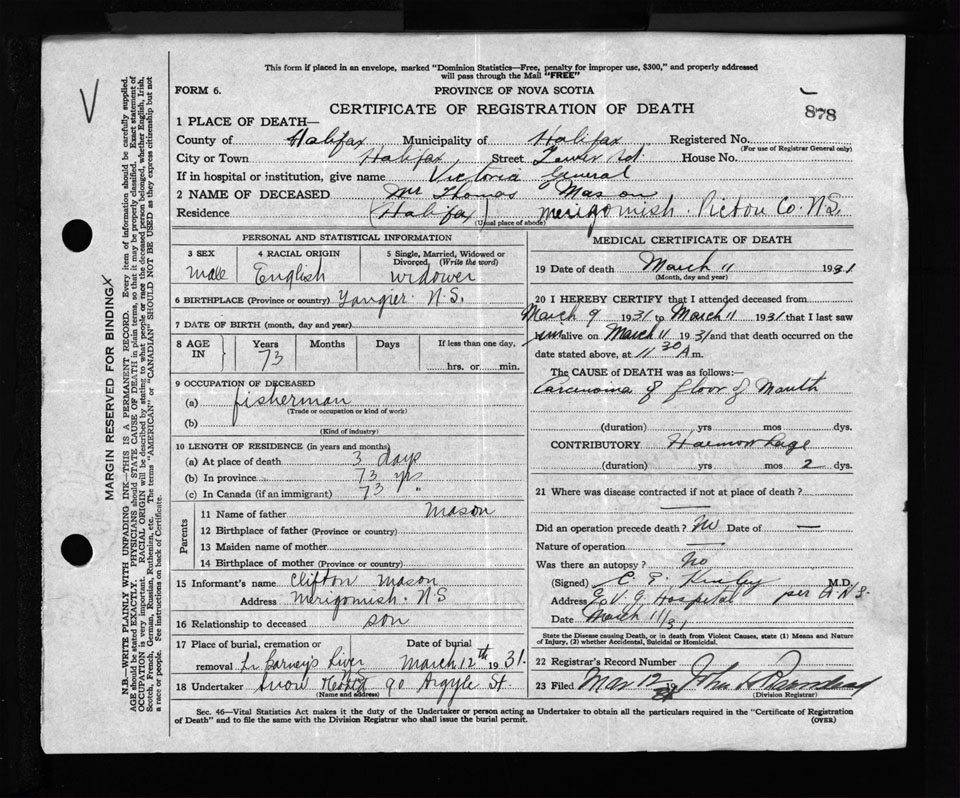 This form if placed in an envelope, marked "Dominion Statistics—Free, penalty for improper use, $300," and properly addressed
will pass through the Mail "FREE"
FORM 6.
PROVINCE OF NOVA SCOTIA
CERTIFICATE OF REGISTRATION OF DEATH
878
1 PLACE OF DEATH—
County of Halifax Municipality of Halifax Registered No.
(For use of Registrar General only)
City or Town Halifax Street Tower Rd. House No.
If in hospital or institution, give name Victoria General
2 NAME OF DECEASED Mr Thomas Mason
Residence (Halifax) Merigomish. Pictou Co. N.S.
(Usual place of abode)
PERSONAL AND STATISTICAL INFORMATION
3 SEX male
4 RACIAL ORIGIN English
5 Single, Married, Widowed or Divorced, (Write the word) widower
6 BIRTHPLACE (Province or country) Tangier. N.S.
7 DATE OF BIRTH (month, day and year)
8 AGE IN Years 73 Months Days If less than one day, hrs. or min.
9 OCCUPATION OF DECEASED
(a) fisherman
(Trade or occupation or kind of work)
(b)
(Kind of industry)
10 LENGTH OF RESIDENCE (in years and months)
(a) At place of death 3 days
(b) In province 73 yrs
(c) In Canada (if an immigrant) 73 "
Parents
11 Name of father Mason
12 Birthplace of father (Province or country)
13 Maiden name of mother
14 Birthplace of mother (Province or country)
15 Informant's name Clifton Mason
Address Merigomish. N S
16 Relationship to deceased son
17 Place of burial, cremation or removal Barney's River
Date of burial March 12th 1931.
18 Undertaker Snow 90 Argyle St.
(Name and address)
MEDICAL CERTIFICATE OF DEATH
19 Date of death March 11 1931
(Month, day and year)
20 I HEREBY CERTIFY that I attended deceased from
March 9 1931 to March 11 1931 that I last saw
him alive on March 11 1931 and that death occurred on the
date stated above, at 11 30 A m.
The CAUSE of DEATH was as follows:
Carcinoma of floor of Mouth
(duration) yrs mos dys.
CONTRIBUTORY Haemorrhage
(duration) yrs mos 2 dys.
21 Where was disease contracted if not at place of death?
Did an operation precede death? No Date of —
Nature of operation —
Was there an autopsy? No
(Signed) C. E. Kinley M.D.
Address V. G. Hospital per
Date March 11/31
State the Disease causing Death, or in death from Violent Causes, state (1) Means and Nature of Injury, (2) whether Accidental, Suicidal or Homicidal.
22 Registrar's Record Number
23 Filed Mar 12 31
(Division Registrar)
Sec. 46—Vital Statistics Act makes it the duty of the Undertaker or person acting as Undertaker to obtain all the particulars required in the "Certificate of Registration
of Death" and to file the same with the Division Registrar who shall issue the burial permit.
(OVER)
MARGIN RESERVED FOR BINDING
N.B.—WRITE PLAINLY WITH UNFADING INK—THIS IS A PERMANENT RECORD. Every item of information should be carefully supplied.
AGE should be stated EXACTLY. PHYSICIANS should STATE CAUSE OF DEATH in plain terms, so that it may be properly classified. Exact statement of
OCCUPATION is very important. RACIAL ORIGIN will be described by stating to what people or race the deceased person belonged, whether English, Irish,
Scotch, French, German, Russian, Ruthenian, etc. The terms "AMERICAN" or "CANADIAN" SHOULD NOT BE USED as they express citizenship but not
a race or people. See instructions on back of Certificate.